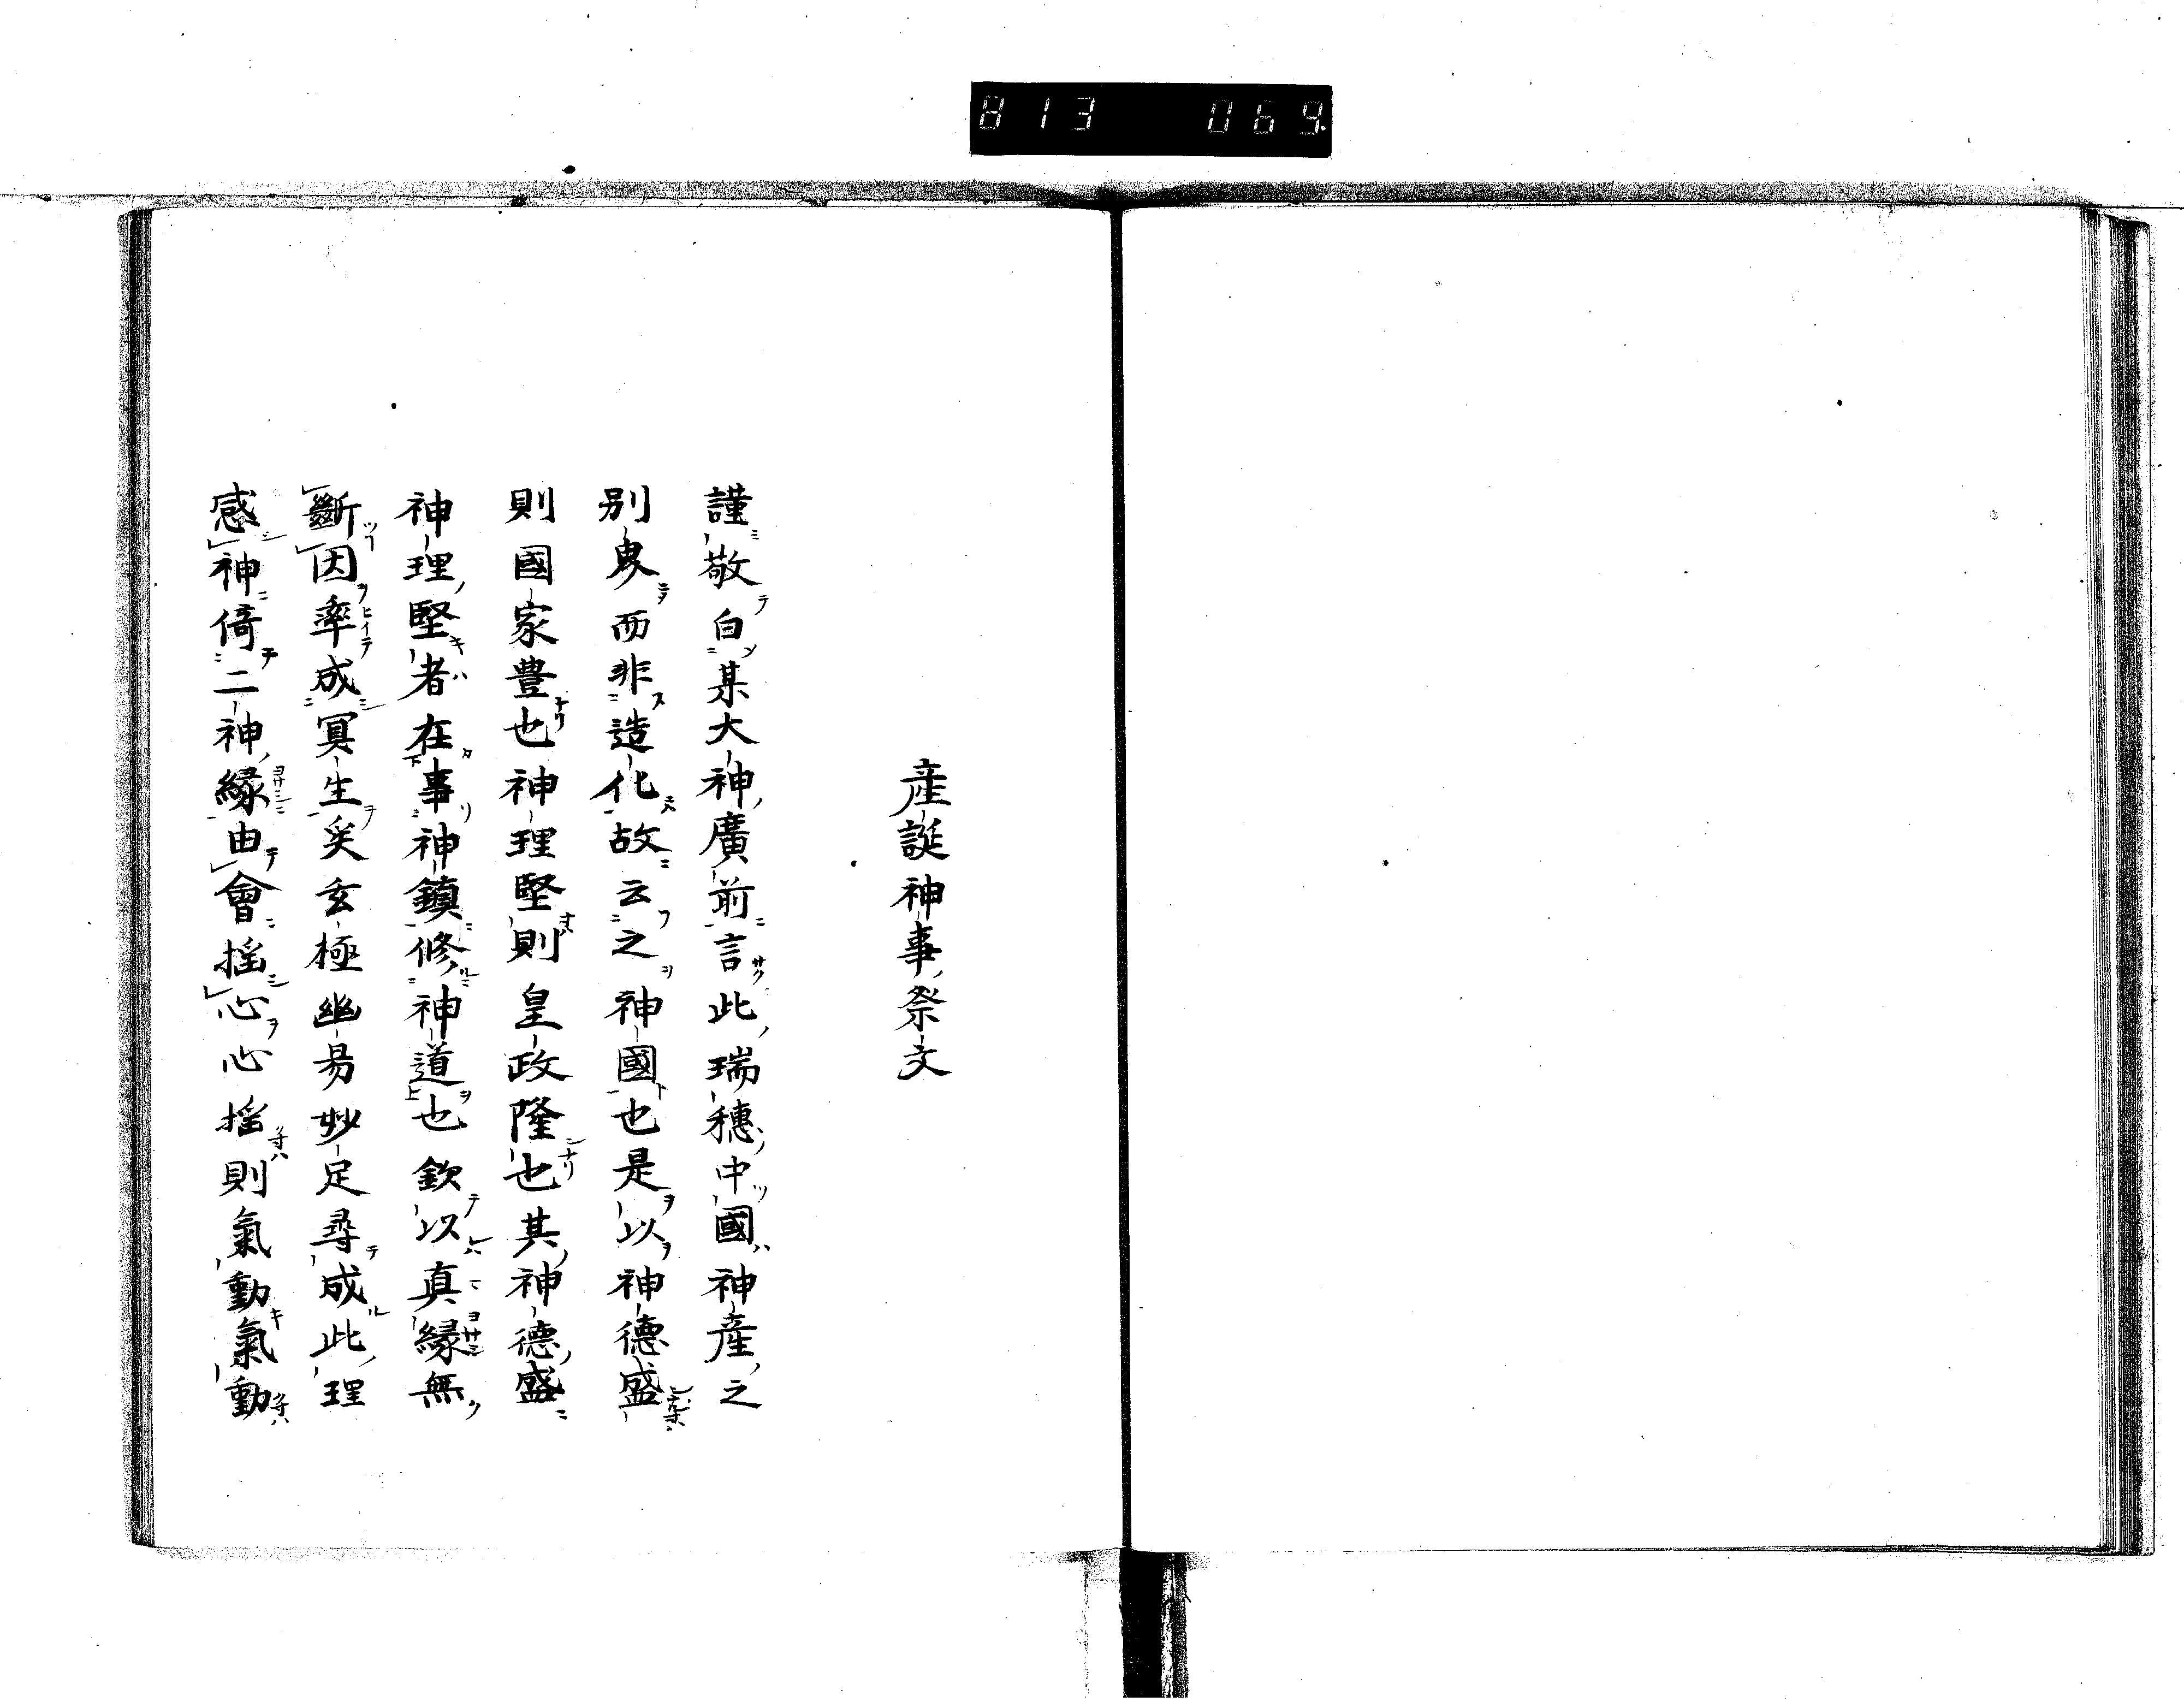 813 069
産誕神事祭文
謹敬白某大神廣前言此瑞穂中國神産之
別㒵而非造化故云之神國也是以神德盛
則國家豊也神理堅則皇政隆也其神德盛
神理堅者在事神鎮修神道也欽以真縁無
斷因率成冥生矣玄極幽易妙足尋成此理
感神倚二神縁由會搖心心搖則氣動氣動